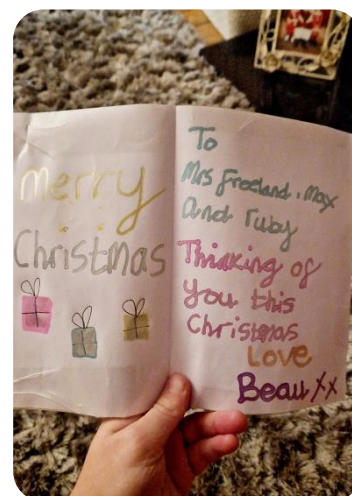 Merry
Christmas
To
Mrs Freeland, Max
and Ruby
Thinking of
you this
Christmas
Love
Beau xx